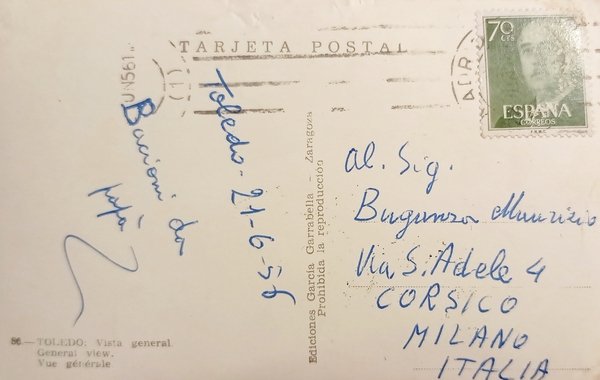 TARJETA POSTAL
70
CTS
ESPAÑA
CORREOS
Toledo - 21-6-56
Bacioni da
papà
Al. Sig.
Buganza Maurizio
Via S. Adele 4
CORSICO
MILANO
ITALIA
Ediciones García Garrabella - Zaragoza
Prohibida la reproducción
86.—TOLEDO: Vista general
General view.
Vue générale